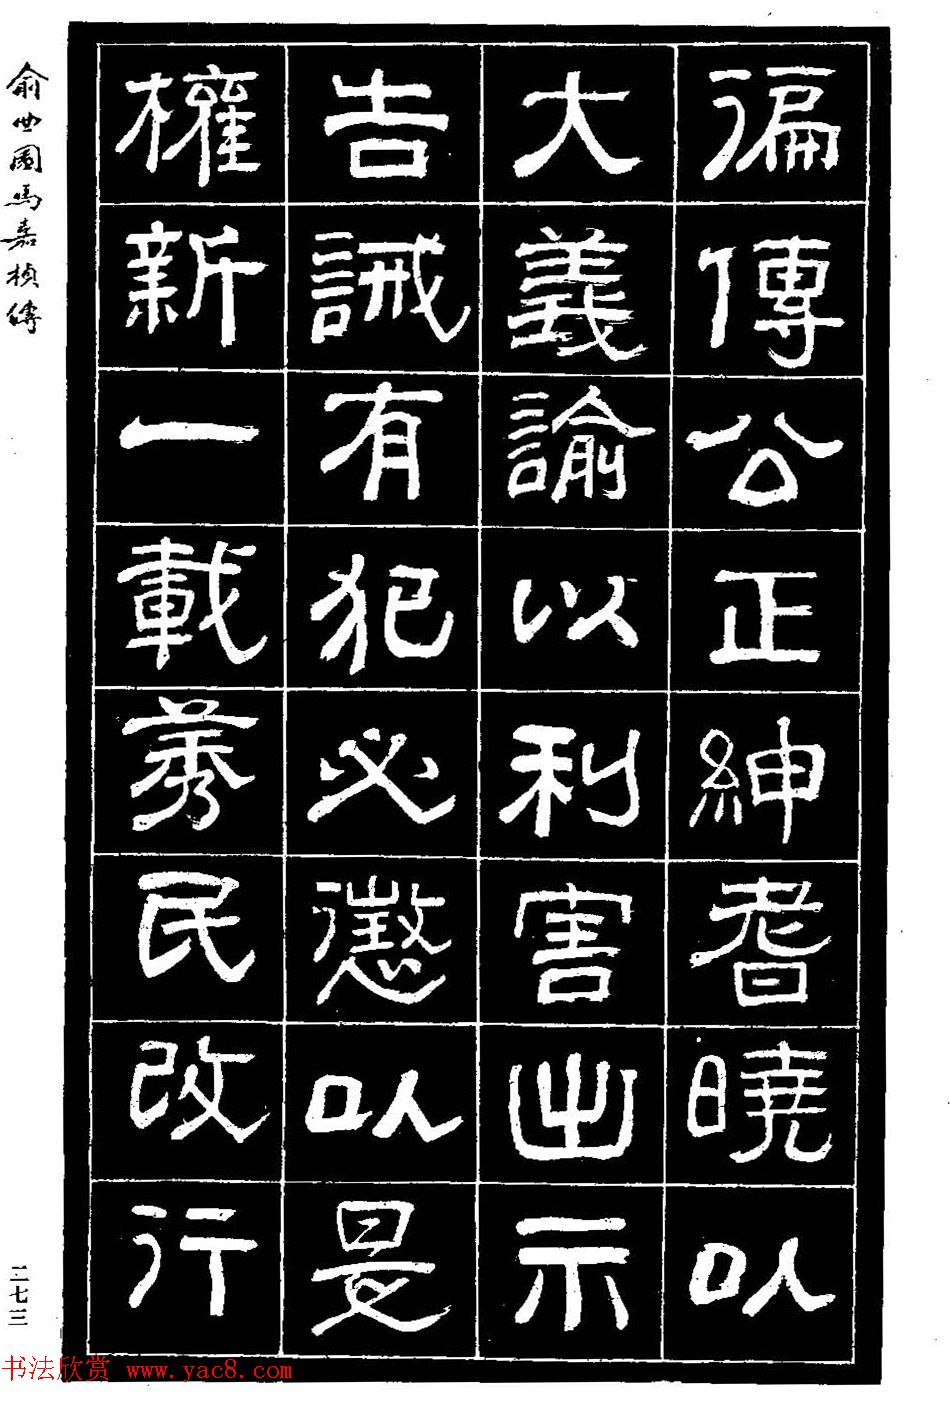 徧傳公正紳耆曉以
大義諭以利害出示
告誡有犯必懲以是
權新一載莠民改行
俞曲園馬嘉楨傳
二七三
书法欣赏 www.yac8.com